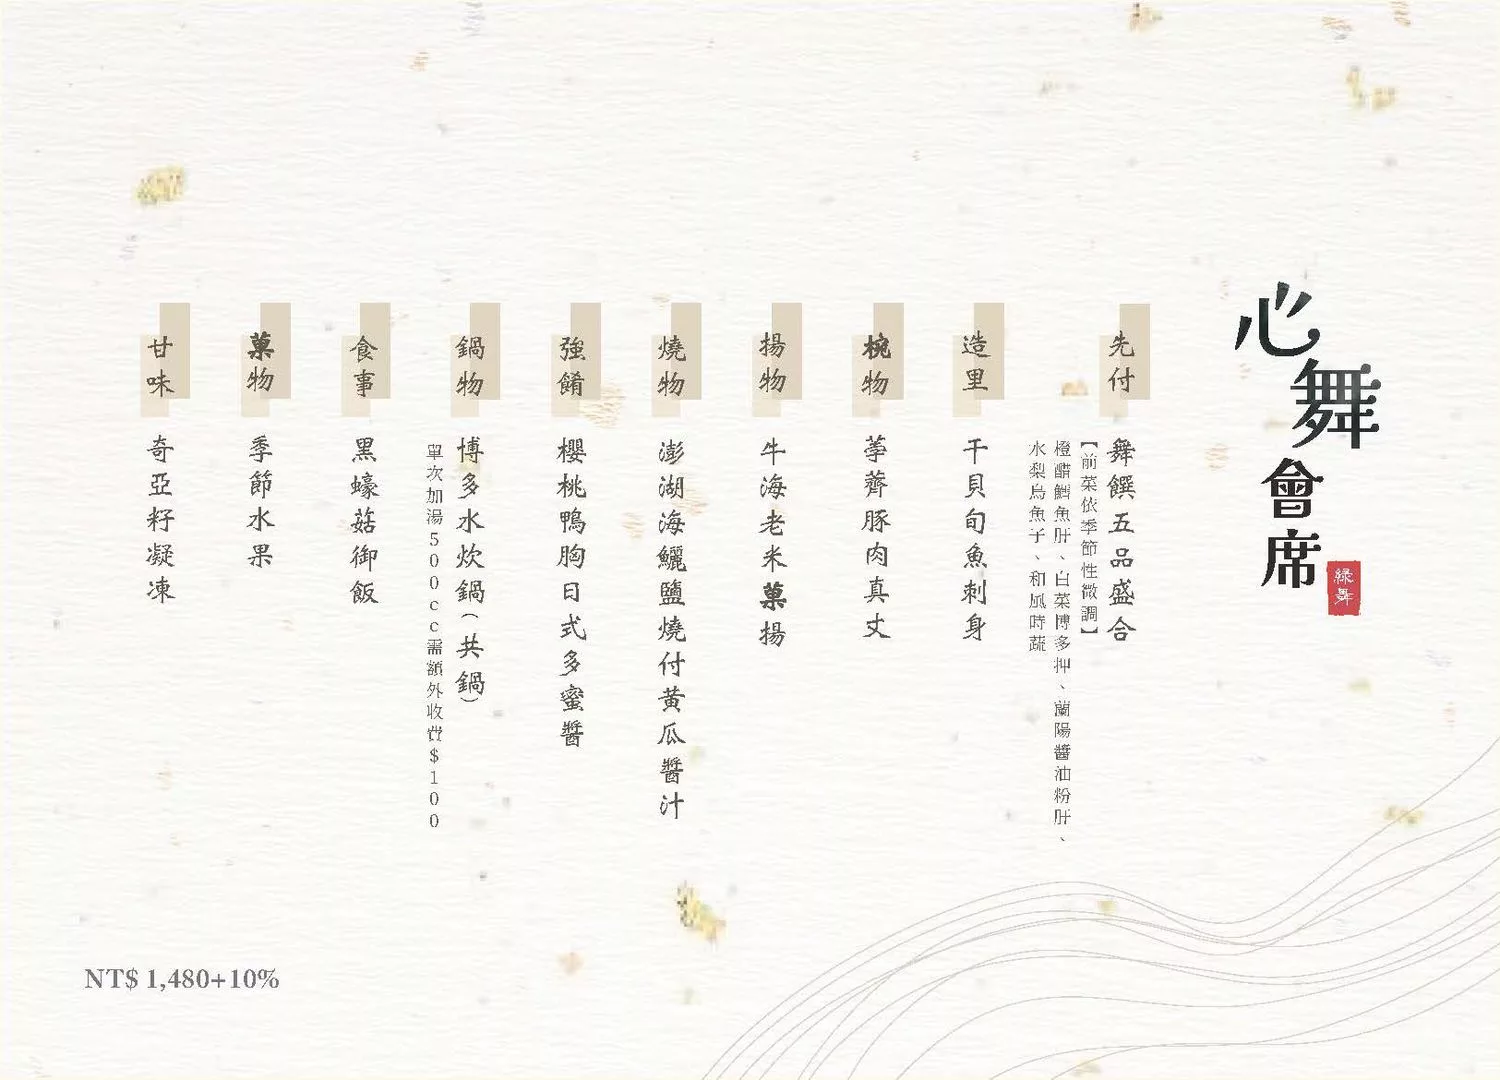 心舞會席
綠舞
先付
舞饌五品盛合
【前菜依季節性微調】
橙醋鱈魚肝、白菜博多押、蘭陽醬油粉肝、
水梨烏魚子、和風時蔬
造里
干貝旬魚刺身
椀物
荸薺豚肉真丈
揚物
牛海老米菓揚
燒物
澎湖海鱺鹽燒付黃瓜醬汁
強餚
櫻桃鴨胸日式多蜜醬
鍋物
博多水炊鍋(共鍋)
單次加湯500cc需額外收費$100
食事
黑蠔菇御飯
菓物
季節水果
甘味
奇亞籽凝凍
NT$ 1,480+10%